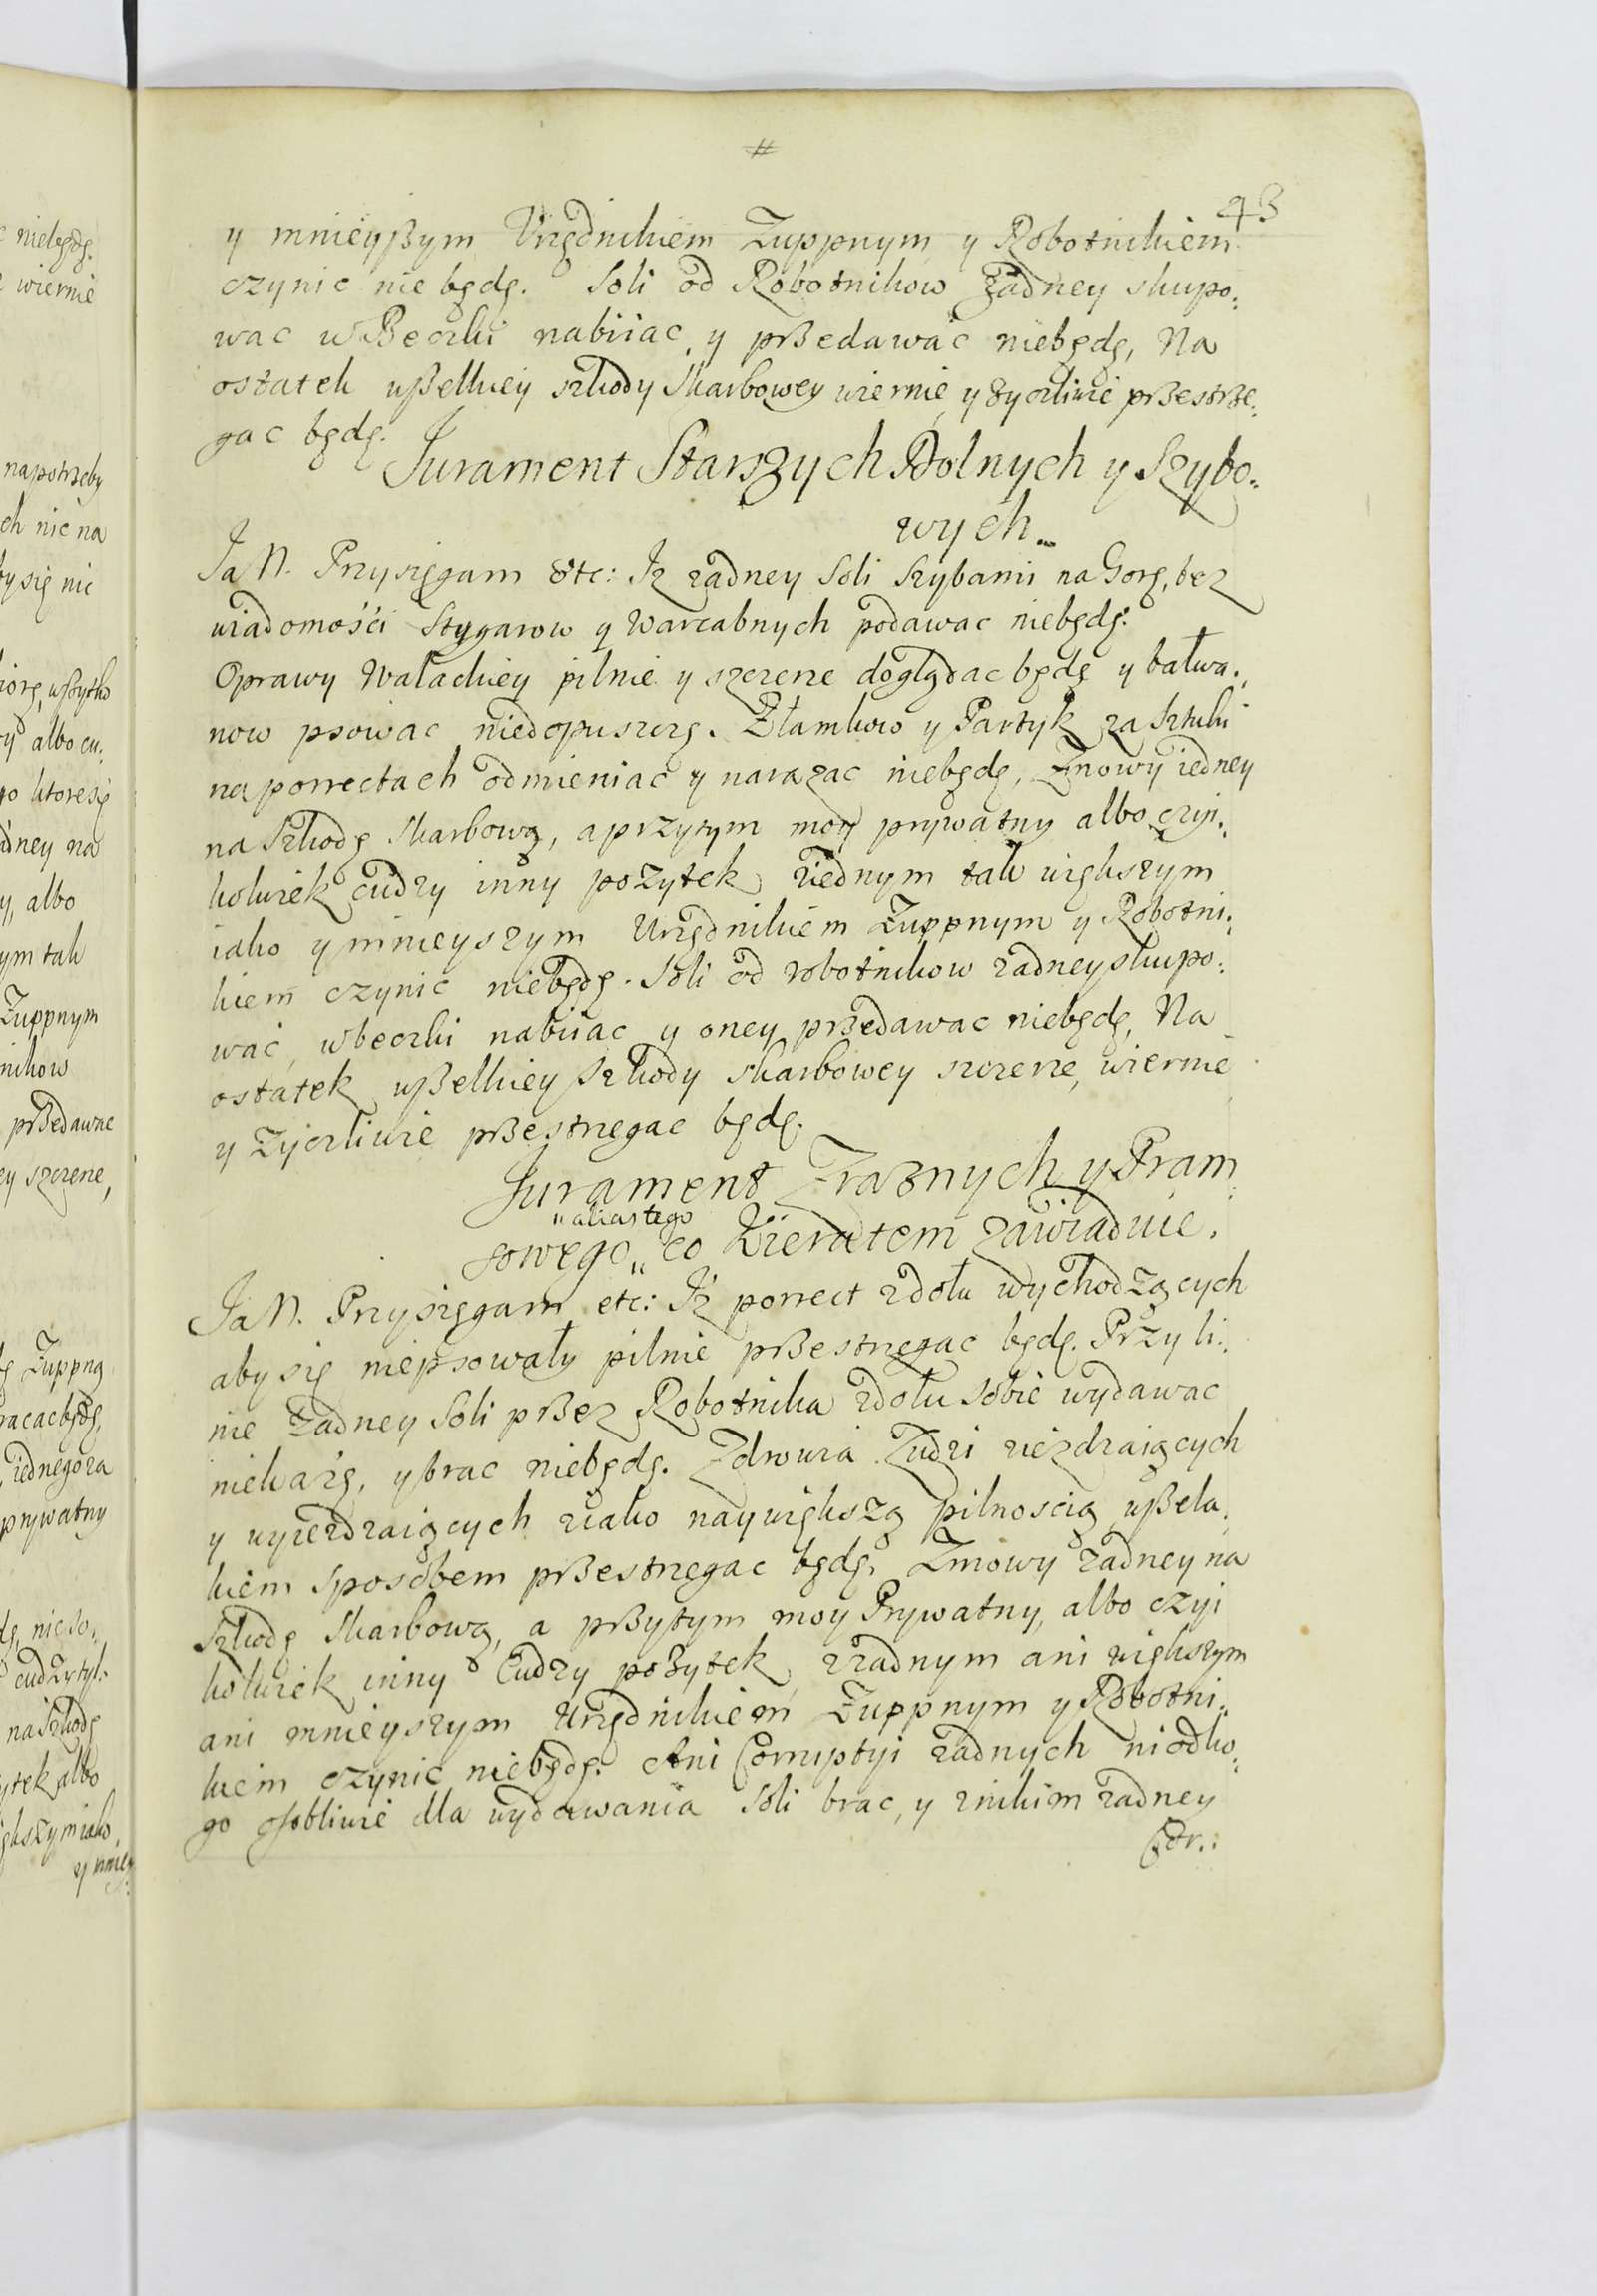 #
43
y mnieyßym Vrzędnikiem Zuppnym y Robotnikiem
czynic nie będę. Soli od Robotnikow żadney skupo:
wac w Beczki nabiiac, y przedawac niebędę, Na
ostatek wßelkiey szkody Skarbowey wiernie y zyczliwie przestrze:
gac będę.
Jurament Starszych Dolnych y Szybo:
wych
Ja N. Przysięgam etc: Iz zadney Soli Szybami na Gorę, bez
wiadomości Stygarow y Warcabnych podawac niebędę:
Oprawy Walackiey pilnie y szczerze doglądac będę y bałwa:
now psowac niedopuszczę. Złamkow y Partyk za Sztuki
na porrectach odmieniac y narazac niebędę, Zmowy zedney
na Szkodę Skarbową, a przytym moy prywatny albo czyi:
kolwiek cudzy inny pozytek ziednym tak większym
iako y mnieyszym Urzędnikiem Zuppnym y Robotni:
kiem czynic niebędę. Soli od robotnikow zadney skupo:
wać, w beczki nabiiac y oney przedawac niebędę, Na
ostatek wßelkiey Szkody skarbowey szczerze, wiernie
y Zyczliwie przestrzegac będę.
Jurament Traznych y Tram:
"alias tego
sowego" co Kieratem zawiaduie.
Ja N. Przysięgam etc: Iż porrect zdołu wychodzących
aby się niepsowały pilnie przestrzegac będę. Przy li:
nie Zadney Soli przez Robotnika zdołu sobie wydawac
niekażę, y brac niebędę. Zdrowia Ludzi ziezdzaiących
y wyiezdzaiących ziako naywiększą pilnoscią wßela:
kiem sposobem przestrzegac będę. Zmowy żadney na
Szkodę Skarbową, a przytym moy Prywatny, albo czyi
kolwiek inny Cudzy pożytek, zzadnym ani większym
ani mnieyszym Urzędnikiem Zuppnym y Robotni:
kiem czynic niebędę. Ani Corruptyi żadnych niodko:
go osobliwie dla wydawania Soli brac, y znikim zadney